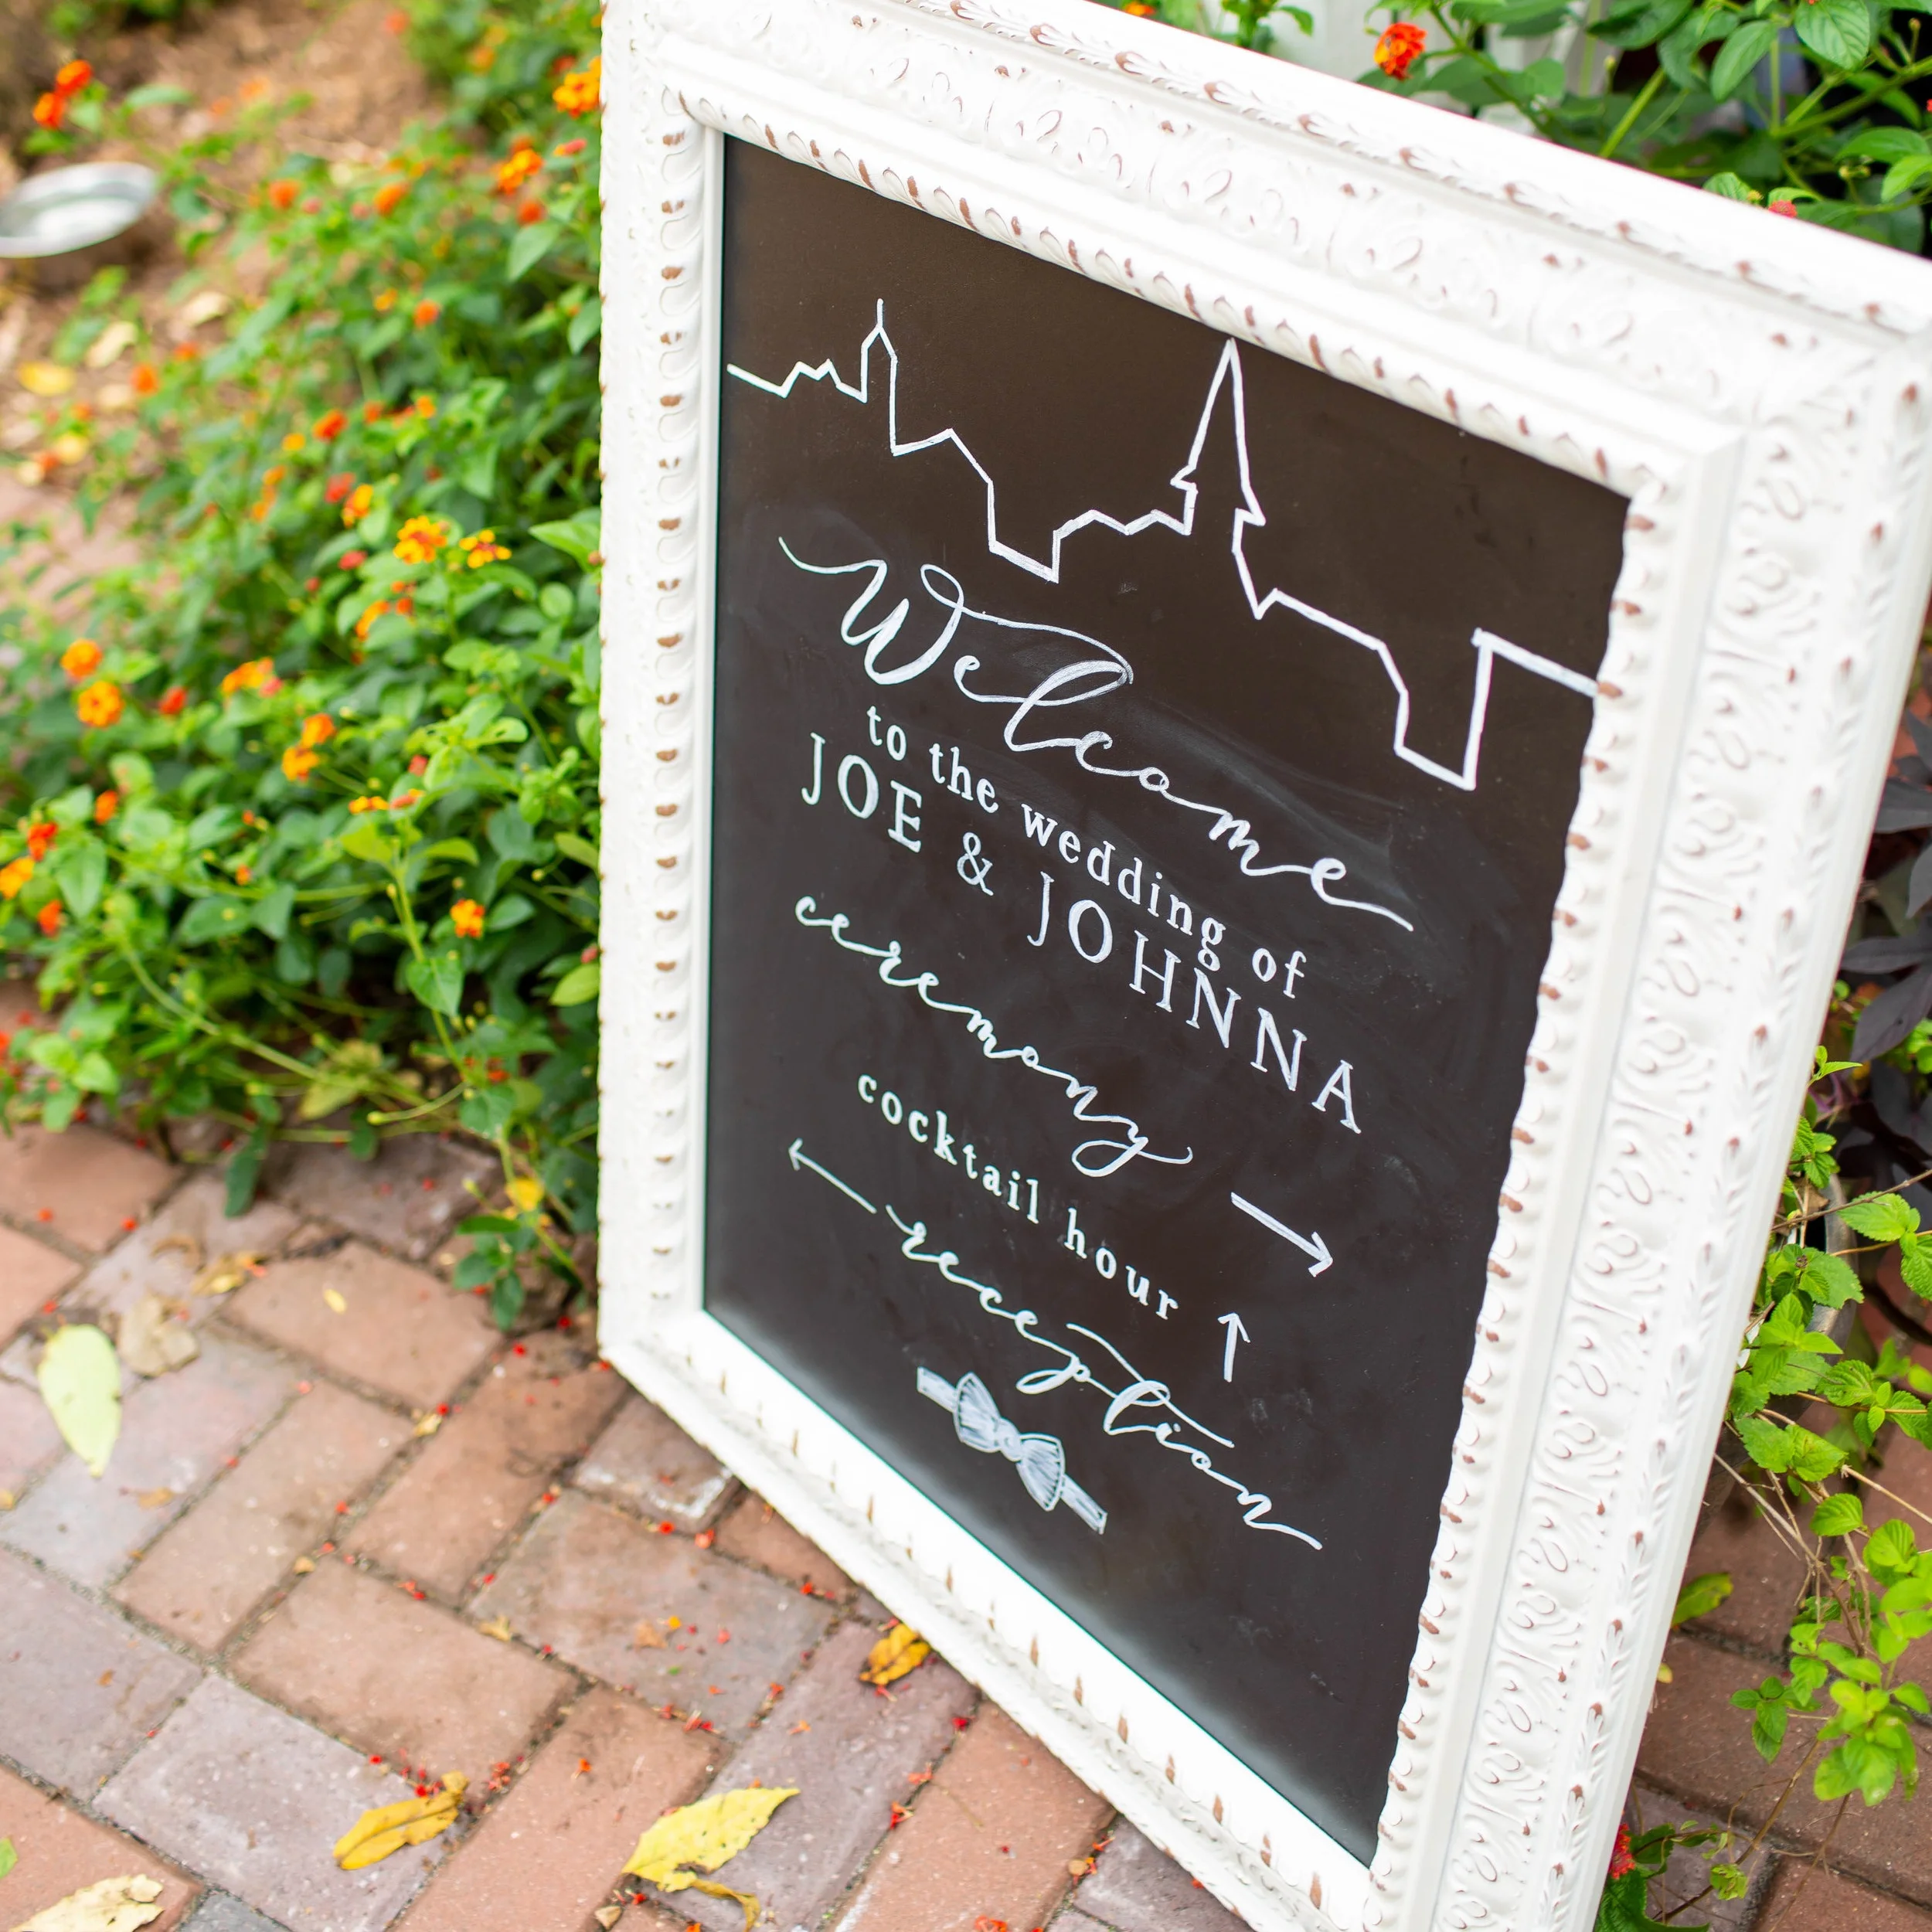 Welcome
to the wedding of
JOE & JOHNNA
ceremony →
cocktail hour ↑
← reception